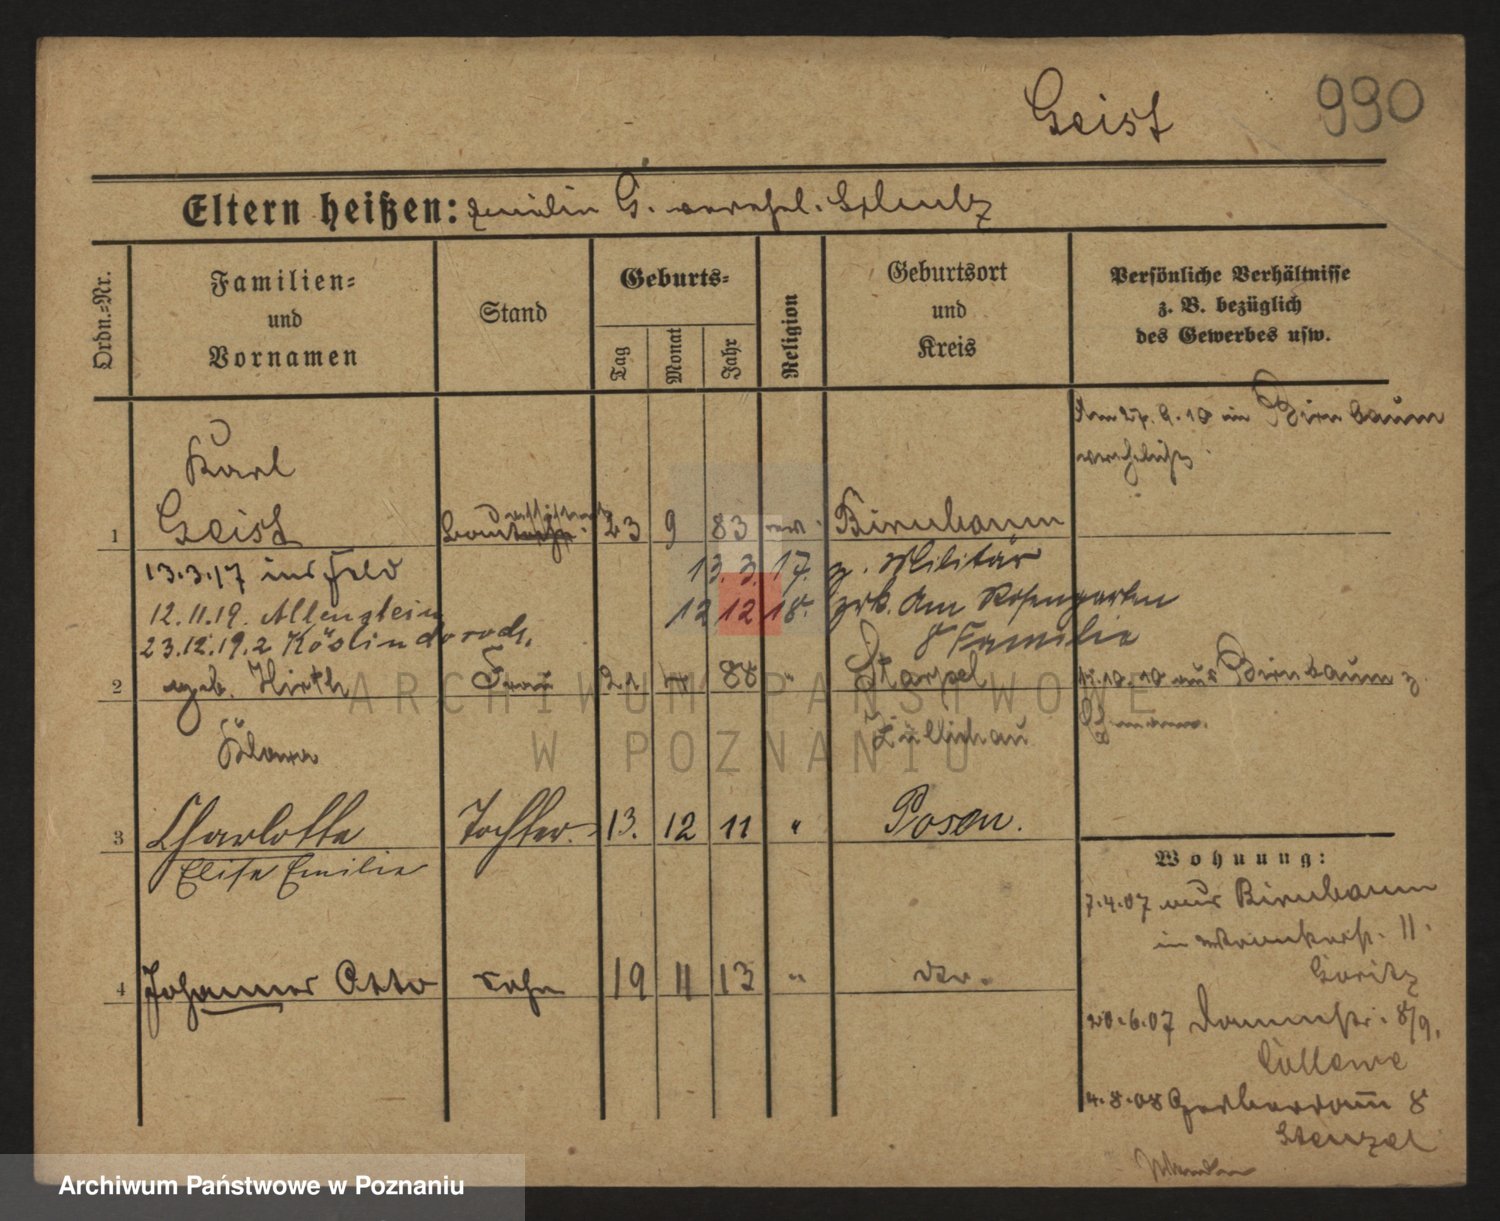 Geist
990
Eltern heißen: Emilie G. verehel. Schulz
Ordn.=Nr.
Familien=
und
Vornamen
Stand
Geburts=
Tag
Monat
Jahr
Religion
Geburtsort
und
Kreis
Persönliche Verhältnisse
z. B. bezüglich
des Gewerbes usw.
Am 27. 9. 10 in Birnbaum
verehelicht.
Karl
1 Geist 23 9 83 ev. Birnbaum
13.3.17 ins Feld 13. 3. 17. z. Militär
12.11.19. Allenstein 12 12 18. zrk. Am Rosengarten
23.12.19. z Köslin 8 Familie
2 geb. Hirth Frau 21 88 " Harpel
10.10 aus Birnbaum z.
Klara Züllichau
Ehemann.
3 Charlotte Tochter. 13. 12 11 " Posen.
Elise Emilie
4 Johannes Otto Sohn 19 11 13 " do.
Wohnung:
7.4.07 aus Birnbaum
in 11.
20.6.07 8/9.
4.8.08 Gerberdamm 8
Stenzel
ARCHIWUM PAŃSTWOWE
W POZNANIU
Archiwum Państwowe w Poznaniu